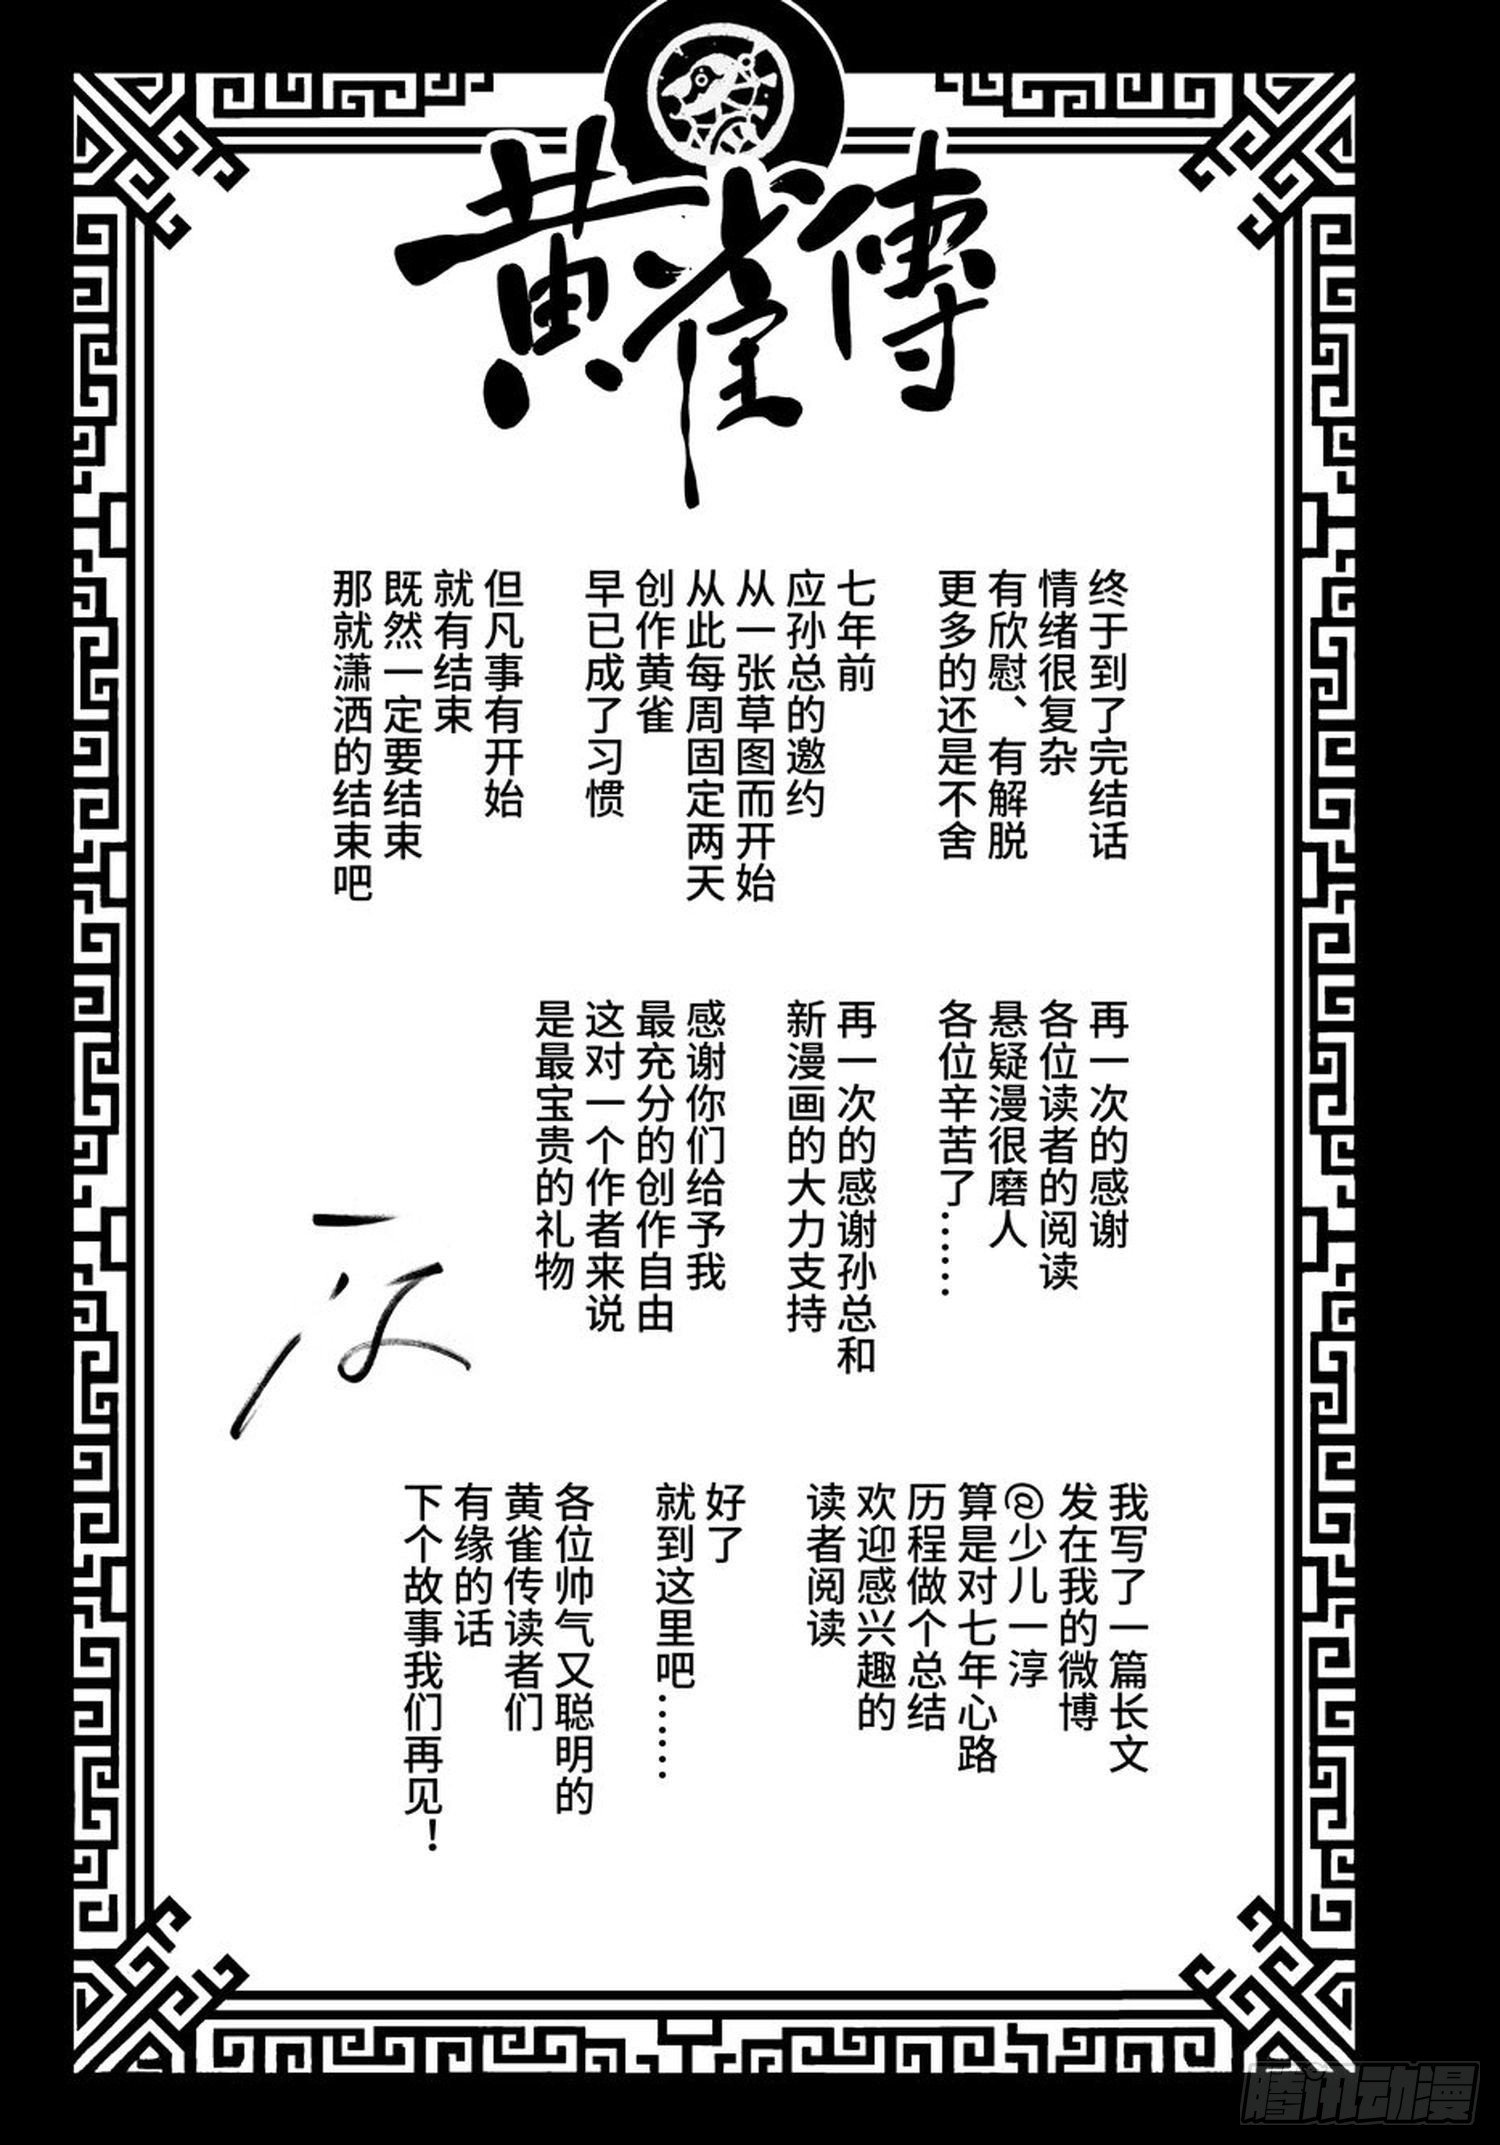 黄雀傳
终于到了完结话
情绪很复杂
有欣慰、有解脱
更多的还是不舍
七年前
应孙总的邀约
从一张草图而开始
从此每周固定两天
创作黄雀
早已成了习惯
但凡事有开始
就有结束
既然一定要结束
那就潇洒的结束吧
再一次的感谢
各位读者的阅读
悬疑漫很磨人
各位辛苦了……
再一次的感谢孙总和
新漫画的大力支持
感谢你们给予我
最充分的创作自由
这对一个作者来说
是最宝贵的礼物
我写了一篇长文
发在我的微博
@少儿一淳
算是对七年心路
历程做个总结
欢迎感兴趣的
读者阅读
好了
就到这里吧……
各位帅气又聪明的
黄雀传读者们
有缘的话
下个故事我们再见！
腾讯动漫